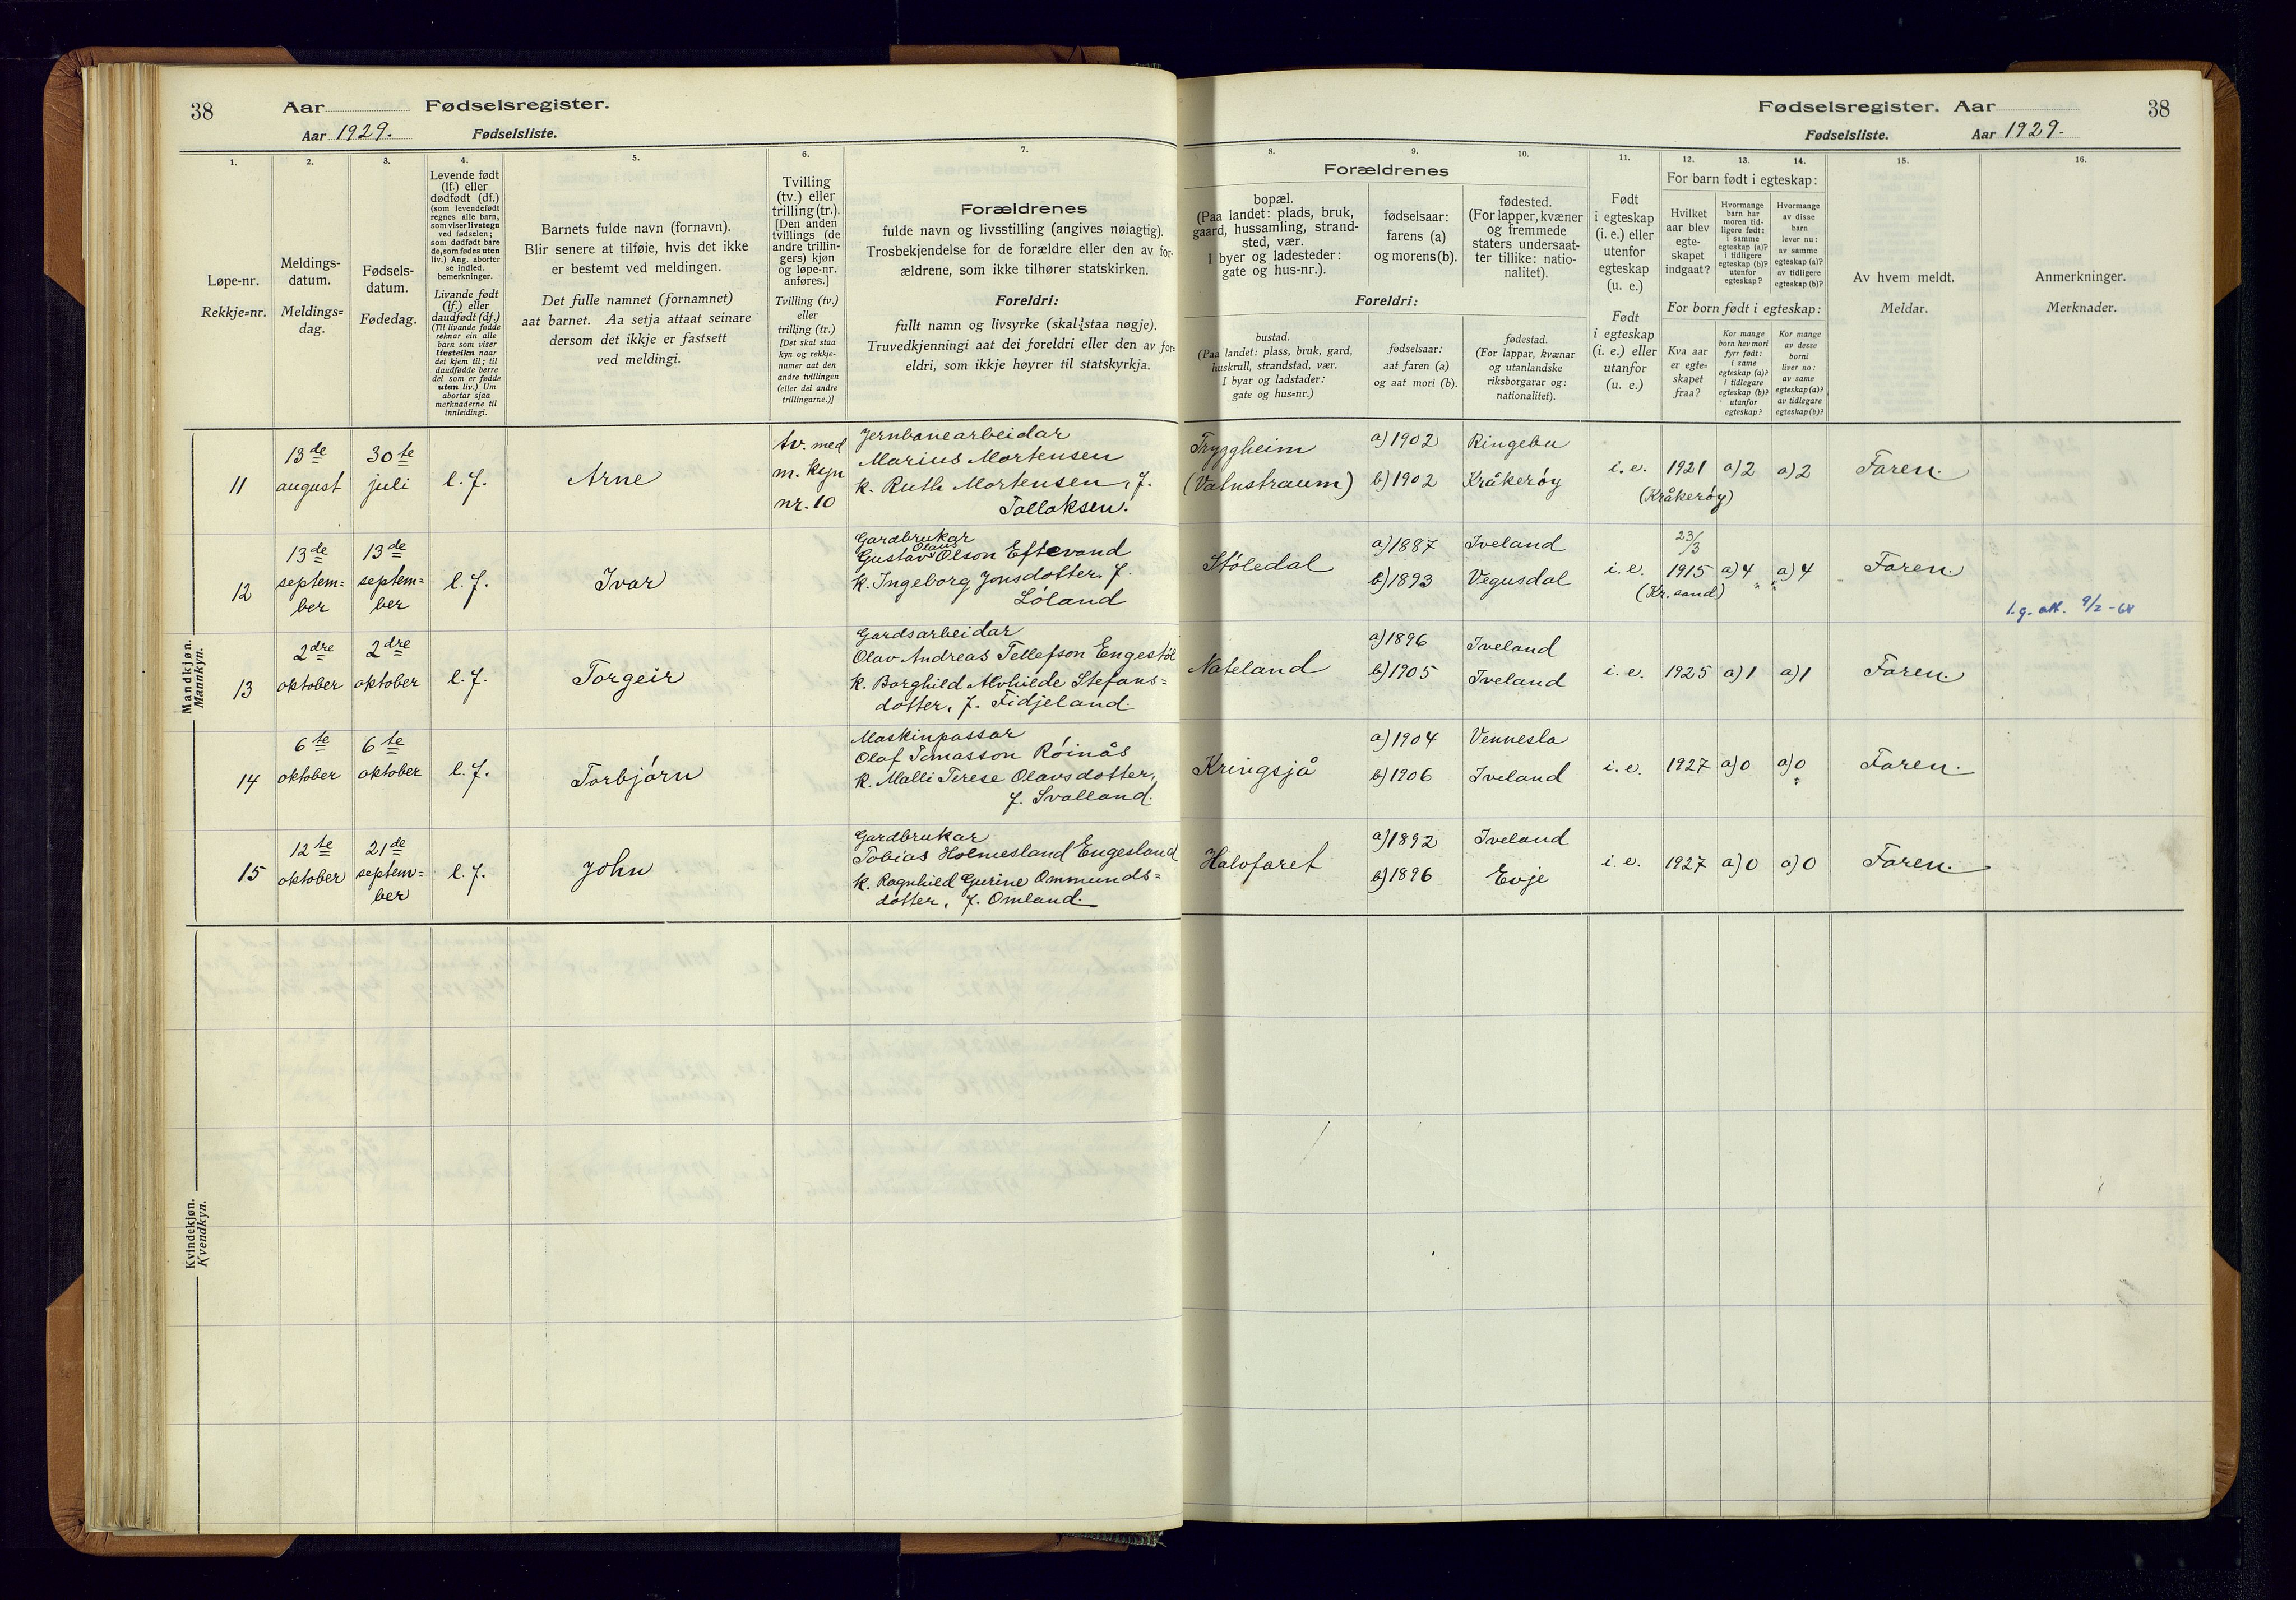 38
Aar
Fødselsregister.
Aar 1929.
Fødselsliste.
1.
2.
3.
4.
5.
6.
7.
Løpe-nr.
Rekkje=nr.
Meldings-
datum.
Meldings=
dag.
Fødsels-
datum.
Fødedag.
Levende født
(lf.) eller
dødfødt (df.)
(som levendefødt
regnes alle barn,
som viser livstegn
ved fødselen;
som dødfødt bare
de, som fødes uten
liv.) Ang. aborter
se indled.
bemerkninger.
Livande født
(lf.) eller
daudfødt (df.)
(Til livande fødde
reknar ein alle
barn som viser
livsteikn naar
dei kjem til; til
daudfødde berre
dei som er fødde
utan liv.) Um
abortar sjaa
merknaderne til
innleidingi.
Barnets fulde navn (fornavn).
Blir senere at tilføie, hvis det ikke
er bestemt ved meldingen.
Det fulle namnet (fornamnet)
aat barnet. Aa setja attaat seinare
dersom det ikkje er fastsett
ved meldingi.
Tvilling
(tv.) eller
trilling (tr.).
[Den anden
tvillings (de
andre trillin-
gers) kjøn
og løpe-nr.
anføres.]
Tvilling (tv.)
eller
trilling (tr.)
[Det skal staa
kyn og rekkje-
numer aat den
andre tvillingen
(eller dei andre
trillingarne.)]
Forældrenes
fulde navn og livsstilling (angives nøiagtig).
Trosbekjendelse for de forældre eller den av for-
ældrene, som ikke tilhører statskirken.
Foreldri:
fullt namn og livsyrke (skal staa nøgje).
Truvedkjenningi aat dei foreldri eller den av for-
eldri, som ikkje høyrer til statskyrkja.
Mandkjøn.
Mannkyn.
11
13de
august
30te
juli
l. f.
Arne
tv. med
m. kyn
nr. 10
Jernbanearbeidar
Marius Mortensen
k. Ruth Mortensen, f.
Tallaksen.
12
13de
septem=
ber
13de
septem=
ber
l. f.
Ivar
Gardbrukar
Olaus
Gustav Olson Eftevand
k. Ingeborg Jonsdotter, f.
Løland
13
2dre
oktober
2dre
oktober
l. f.
Torgeir
Gardsarbeidar
Olav Andreas Tellefson Engestøl
k. Borghild Alvhilde Stefans=
dotter, f. Fidjeland.
14
6te
oktober
6te
oktober
l. f.
Torbjørn
Maskinpassar
Olaf Temasson Røinås
k. Malli Terese Olavsdotter,
f. Svalland.
15
12te
oktober
21de
septem=
ber
l. f.
John
Gardbrukar
Tobias Holmesland Engesland
k. Ragnhild Gurine Ommunds=
dotter, f. Omland.
Kvindekjøn.
Kvendkyn.
Fødselsregister. Aar
38
Fødselsliste.
Aar 1929.
8.
9.
10.
11.
12.
13.
14.
15.
16.
Forældrenes
bopæl.
(Paa landet: plads, bruk,
gaard, hussamling, strand-
sted, vær.
I byer og ladesteder:
gate og hus-nr.).
fødselsaar:
farens (a)
og morens (b).
fødested.
(For lapper, kvæner
og fremmede
staters undersaat-
ter tillike: natio-
nalitet).
Foreldri:
bustad.
(Paa landet: plass, bruk, gard,
huskrull, strandstad, vær.
I byar og ladstader:
gate og hus=nr.)
fødselsaar:
aat faren (a)
og aat mori (b).
fødestad.
(For lappar, kvænar
og utanlandske
riksborgarar og:
nationalitet).
Født
i egteskap
(i. e.) eller
utenfor
egteskap
(u. e.)
Født
i egteskap
(i. e.) eller
utanfor
(u. e.)
For barn født i egteskap:
Hvilket
aar blev
egte-
skapet
indgaat?
Hvormange
barn har
moren tid-
ligere født:
i samme
egteskap (a)?
i tidligere
egteskap (b)?
utenfor
egteskap?
Hvormange
av disse
barn
lever nu:
av samme
egteskap (a)?
av tidligere
egteskap (b)?
For born født i egteskap:
Kva aar
er egte=
skapet
fraa?
Kor mange
born hev mori
fyrr født:
i same
egteskap (a)?
i tidlegare
egteskap (b)?
utanfor
egteskap?
Kor mange
av desse
borni
liver no:
av same
egteskap (a)?
av tidlegare
egteskap (b)?
Av hvem meldt.
Meldar.
Anmerkninger.
Merknader.
Tryggheim
(Vatnstraum)
a) 1902
b) 1902
Ringebu
Kråkerøy
i. e.
1921
(Kråkerøy)
a) 2
a) 2
Faren.
Støledal
a) 1887
b) 1893
Iveland
Vegusdal
i. e.
23/3
1915
(Kr.sand)
a) 4
a) 4
Faren.
1.g. att. 9/2-68
Nateland
a) 1896
b) 1905
Iveland
Iveland
i. e.
1925
a) 1
a) 1
Faren.
Kringsjå
a) 1904
b) 1906
Vennesla
Iveland
i. e.
1927
a) 0
a) 0
Faren.
Halvfaret
a) 1892
b) 1896
Iveland
Evje
i. e.
1927
a) 0
a) 0
Faren.